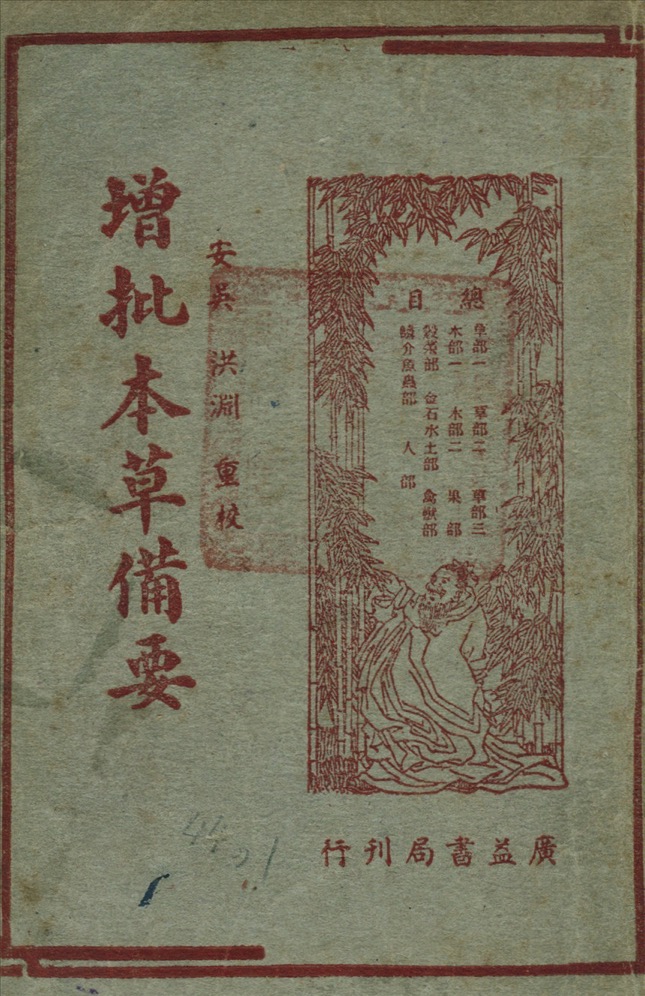 總目
草部一 草部二 草部三
木部一 木部二 果部
穀菜部 金石水土部 禽獸部
鱗介魚蟲部 人部
安吳 洪淵 重校
增批本草備要
廣益書局刊行
44 21